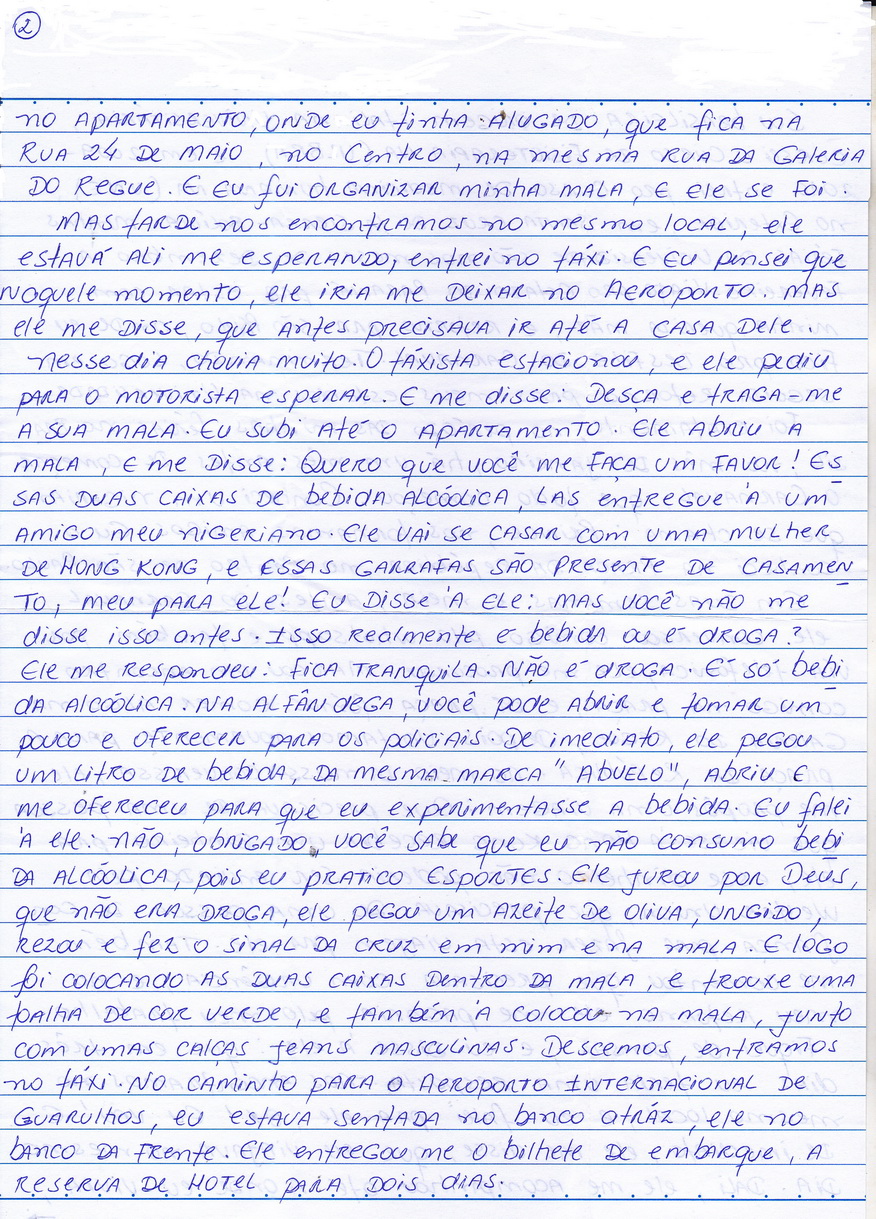 2
no APARTAMENTO, ONDE EU tinha ALUGADO, que fica na
RUA 24 DE MAIO, no Centro, na mesma RUA DA GALERIA
DO REGUE. E EU fui ORGANIZAR minha MALA, E ele se foi
MAS tARDE nos encontramos no mesmo local, ele
estavá ALI me esperando, entrei no táxi. E EU pensei que
naquele momento, ele IRIA me DEIXAR no AEROPORTO. MAS
ele me DISSE, que ANTES PRECISAVA IR Até A CASA Dele.
nesse dia chovia muito. O táxista estacionou, e ele pediu
PARA O MOTORISTA esperar. E me disse: DESÇA e tRAGA-me
A SUA MALA. EU SUBI Até O APARTAMENTO. Ele ABRIU A
MALA, E me Disse: Quero que você me FAÇA um FAVOR! ES
SAS DUAS CAIXAS DE bebida ALCÓOLICA, LAS entregue 'A um
AMIGO meu nigeriano. Ele VAI se CASAR com uma mulher
DE HONG KONG, e ESSAS GARRAFAS SÃO PRESENTE DE CASAMEN
TO, meu PARA ele! EU DISSE 'A ELE: MAS VOCÊ não me
disse isso antes. Isso Realmente é bebida ou é DROGA?
Ele me RESPONDEU: FICA TRANQUILA. NÃO é DROGA. É SÓ bebi
DA ALCÓOLICA. NA ALFÂNDEGA, você pode Abrir e tomar um
pouco e OFERECER PARA OS policiais. De imediato, ele pegou
um Litro DE bebida, DA mesma MARCA "ABUELO", ABRIU E
me ofereceu PARA que eu experimentasse A bebida. EU falei
'A ele: não, OBRIGADO. VOCÊ SABE que eu não consumo bebi
DA ALCÓOLICA, pois eu PRATICO ESPORTES. Ele jurou por Deus,
que não ERA DROGA, ele pegou um Azeite DE OLIVA, UNGIDO,
REZOU e fez o SINAL DA CRUZ em mim e na MALA. E lógo
foi colocando AS DUAS CAIXAS DENTRO DA MALA, e trouxe UMA
toalha DE COR VERDE, e também 'A colocou na MALA, JUNTO
com umas calças jeans MASCULINAS. DESCEMOS, entramos
no táxi. NO CAMINHO PARA O AEROPORTO INTERNACIONAL DE
GUARULHOS, eu estava sentada no banco atráz, ele no
banco DA FRENTE. Ele entregou me O bilhete DE embarque, A
RESERVA DE HOTEL PARA DOIS DIAS.